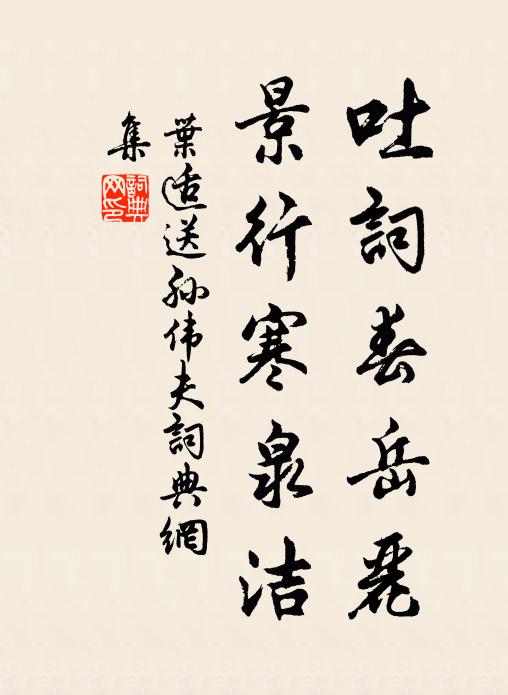 吐詞春岳麗
景行寒泉洁
葉适送孙伟夫詞典網
集
詞典網印